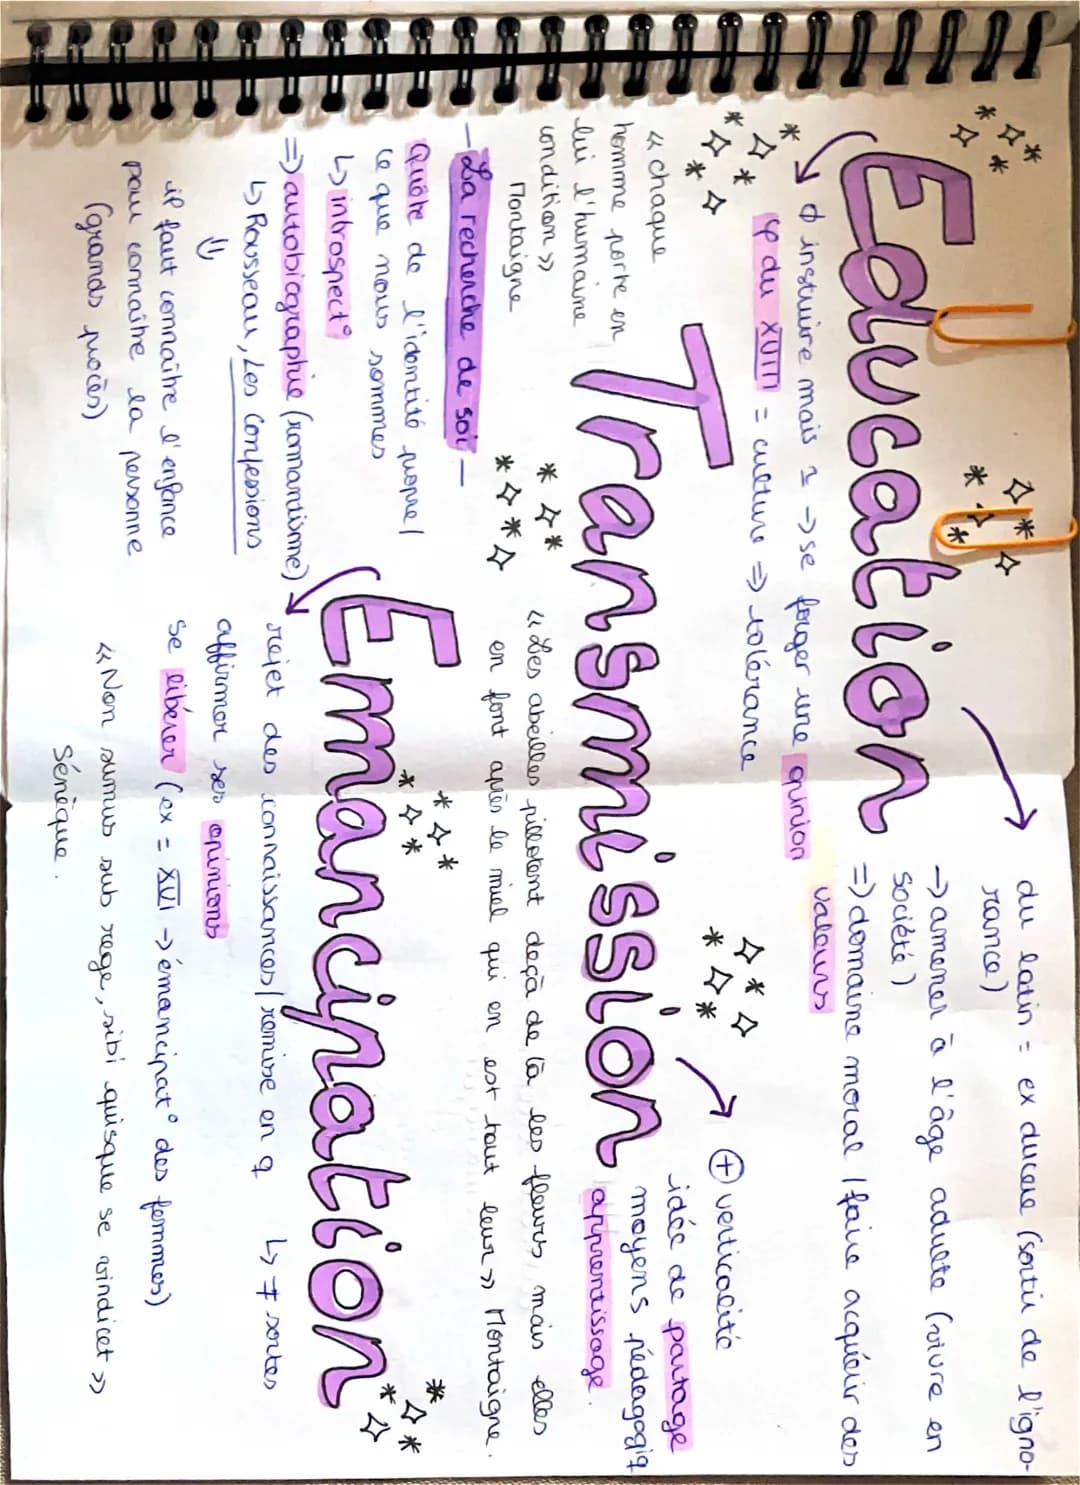 Education
du latin = ex ducere (sortir de l'igno-
rance)
-> amener à l'âge adulte (vivre en
société)
=> domaine moral / faire acquérir des
valeurs
∅ instruire mais 1 -> se forger une opinion
φ du XVIII = culture => tolérance
Transmission
⊕ verticalité
idée de partage
moyens pédagogiq
apprentissage.
« chaque
homme porte en
lui l'humaine
condition »
Montaigne
« Les abeilles pillotent deçà de là les fleurs, mais elles
en font après le miel qui en est tout leur » Montaigne.
- La recherche de soi -
Quête de l'identité propre /
ce que nous sommes
↳ introspect°
=> autobiographie (romantisme)
↳ Rousseau, Les Confessions
⇓
il faut connaître l'enfance
pour connaître la personne
(grands procès)
Emancipation
rejet des connaissances / remise en q
↳ ≠ sortes
affirmer ses opinions
se libérer (ex = XVI -> émancipat° des femmes)
« Non sumus sub rege, sibi quisque se vindicet »
Sénèque.